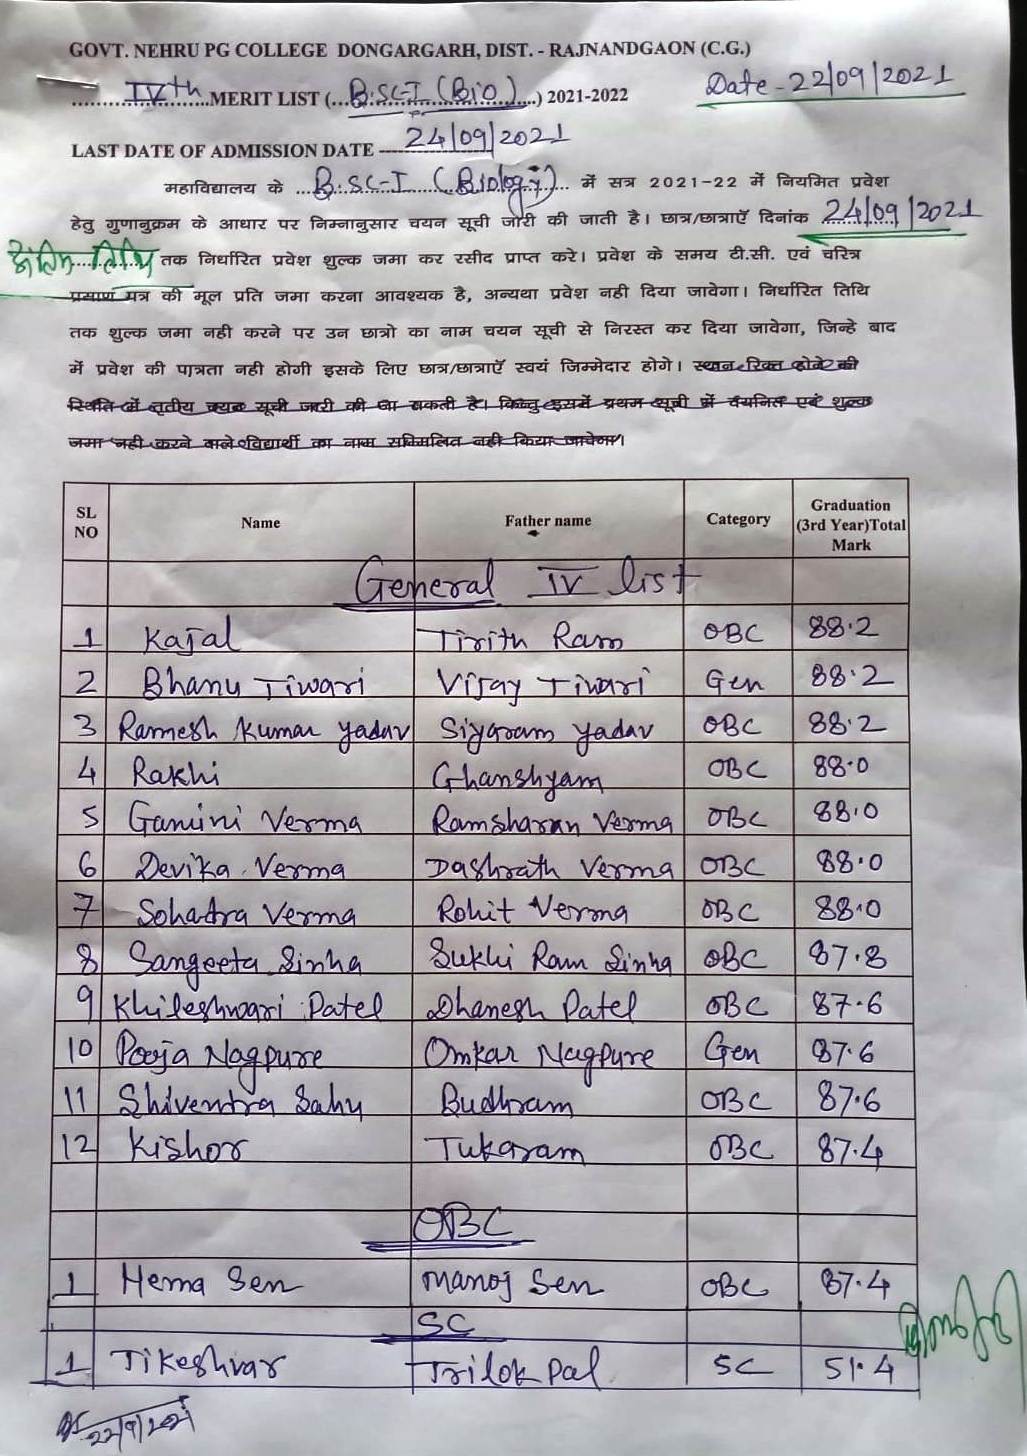 GOVT. NEHRU PG COLLEGE DONGARGARH, DIST. - RAJNANDGAON (C.G.)
Date - 22/09/2021
IVth MERIT LIST (...B.SC-I (Bio)...) 2021-2022
LAST DATE OF ADMISSION DATE 24/09/2021
महाविद्यालय के ...B.SC-I (Biology)... में सत्र 2021-22 में नियमित प्रवेश
हेतु गुणानुक्रम के आधार पर निम्नानुसार चयन सूची जारी की जाती है। छात्र/छात्राऍ दिनांक 24/09/2021
अंतिम तिथि तक निर्धारित प्रवेश शुल्क जमा कर रसीद प्राप्त करे। प्रवेश के समय टी.सी. एवं चरित्र
प्रमाण पत्र की मूल प्रति जमा करना आवश्यक है, अन्यथा प्रवेश नही दिया जावेगा। निर्धारित तिथि
तक शुल्क जमा नही करने पर उन छात्रो का नाम चयन सूची से निरस्त कर दिया जावेगा, जिन्हे बाद
में प्रवेश की पात्रता नही होगी इसके लिए छात्र/छात्राऍ स्वयं जिम्मेदार होगे। स्थान रिक्त होने की
स्थिति में तृतीय चयन सूची जारी की जा सकती है। किन्तु इसमें प्रथम सूची में चयनित एवं शुल्क
जमा नही करने वाले विद्यार्थी का नाम सम्मिलित नही किया जावेगा।
SL NO Name Father name Category Graduation (3rd Year)Total Mark
General IV list
1 Kajal Tirith Ram OBC 88.2
2 Bhanu Tiwari Vijay Tiwari Gen 88.2
3 Ramesh Kumar yadav Siyaram yadav OBC 88.2
4 Rakhi Ghanshyam OBC 88.0
5 Gamini Verma Ramsharan Verma OBC 88.0
6 Devika Verma Dashrath Verma OBC 88.0
7 Sohadra Verma Rohit Verma OBC 88.0
8 Sangeeta Sinha Sukhi Ram Sinha OBC 87.8
9 Khileshwari Patel Dhanesh Patel OBC 87.6
10 Pooja Nagpure Omkar Nagpure Gen 87.6
11 Shivendra Sahu Budhram OBC 87.6
12 Kishor Tukaram OBC 87.4
OBC
1 Hema Sen Manoj Sen OBC 87.4
SC
1 Tikeshvar Trilok Pal SC 51.4
22/9/2021